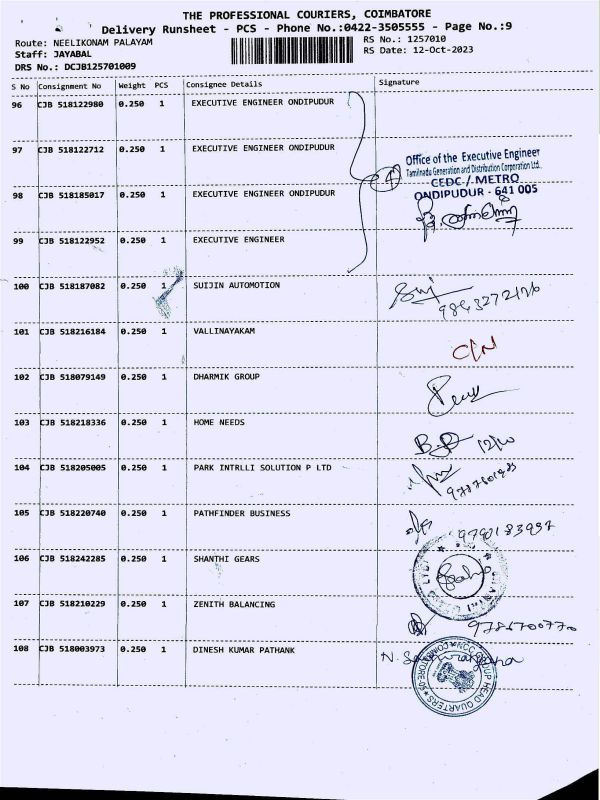 THE PROFESSIONAL COURIERS, COIMBATORE
Delivery Runsheet - PCS - Phone No.:0422-3505555 - Page No.:9
Route: NEELIKONAM PALAYAM
RS No.: 1257010
Staff: JAYABAL
RS Date: 12-Oct-2023
DRS No.: DCJB125701009
S No Consignment No Weight PCS Consignee Details Signature
96 CJB 518122980 0.250 1 EXECUTIVE ENGINEER ONDIPUDUR
97 CJB 518122712 0.250 1 EXECUTIVE ENGINEER ONDIPUDUR
Office of the Executive Engineer
Tamilnadu Generation and Distribution Corporation Ltd.
4 CEDC / METRO
98 CJB 518185017 0.250 1 EXECUTIVE ENGINEER ONDIPUDUR
ONDIPUDUR - 641 005
99 CJB 518122952 0.250 1 EXECUTIVE ENGINEER
100 CJB 518187082 0.250 1 SUIJIN AUTOMOTION
101 CJB 518216184 0.250 1 VALLINAYAKAM
C/N
102 CJB 518079149 0.250 1 DHARMIK GROUP
103 CJB 518218336 0.250 1 HOME NEEDS
12/10
104 CJB 518205005 0.250 1 PARK INTRLLI SOLUTION P LTD
105 CJB 518220740 0.250 1 PATHFINDER BUSINESS
106 CJB 518242285 0.250 1 SHANTHI GEARS
107 CJB 518210229 0.250 1 ZENITH BALANCING
9786700770
108 CJB 518003973 0.250 1 DINESH KUMAR PATHANK
NCC GROUP HEAD QUARTERS COIMBATORE